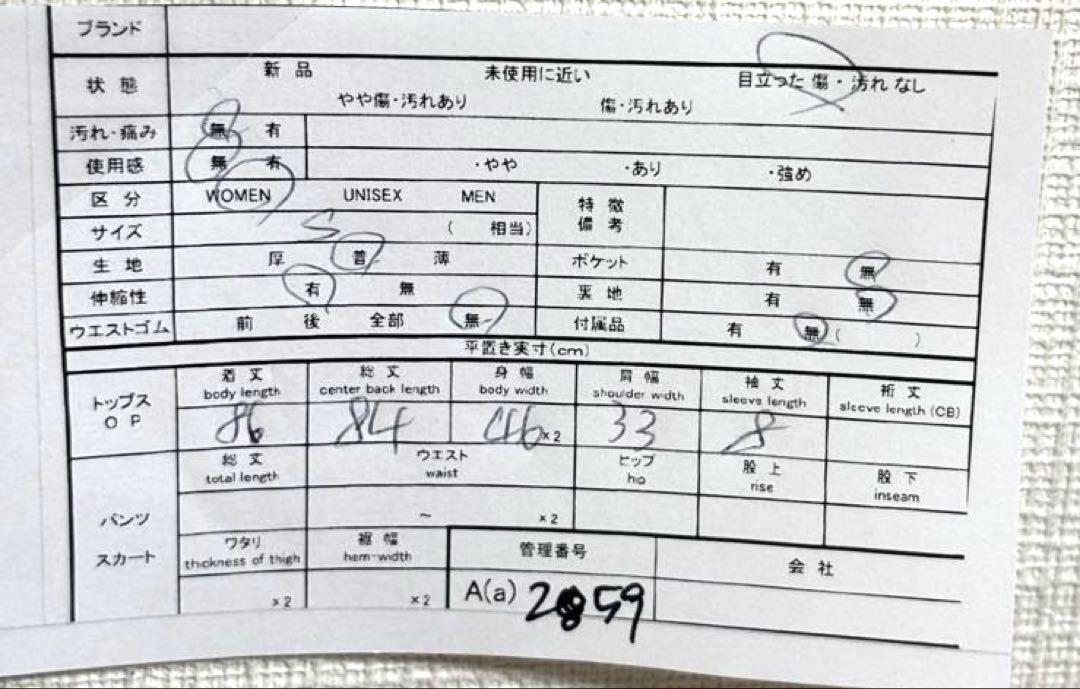 ブランド
状態 新品 未使用に近い 目立った傷・汚れなし
やや傷・汚れあり 傷・汚れあり
汚れ・痛み 無 有
使用感 無 有 ・やや ・あり ・強め
区分 WOMEN UNISEX MEN 特徴
備考
サイズ S ( 相当)
生地 厚 普 薄 ポケット 有 無
伸縮性 有 無 裏地 有 無
ウエストゴム 前 後 全部 無 付属品 有 無 ( )
平置き実寸(cm)
トップス
OP
着丈 総丈 身幅 肩幅 袖丈 裄丈
body length center back length body width shoulder width sleeve length sleeve length (CB)
86 84 46 ×2 33 8
パンツ
スカート
総丈 ウエスト ヒップ 股上 股下
total length waist hip rise inseam
~ ×2
ワタリ 裾幅 管理番号 会社
thickness of thigh hem-width
×2 ×2 A(a) 2859